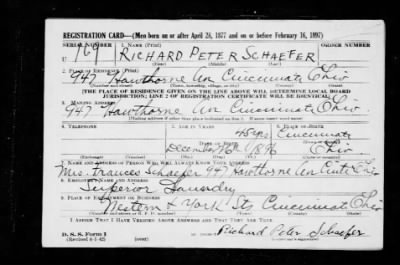 REGISTRATION CARD—(Men born on or after April 28, 1877 and on or before February 16, 1897)
SERIAL NUMBER 1. NAME (Print) ORDER NUMBER
U RICHARD PETER SCHAEFER
(First) (Middle) (Last)
2. PLACE OF RESIDENCE (Print)
947 Hawthorne Av Cincinnati Ohio
(Number and street) (Town, township, village, or city) (County) (State)
[THE PLACE OF RESIDENCE GIVEN ON THE LINE ABOVE WILL DETERMINE LOCAL BOARD
JURISDICTION; LINE 2 OF REGISTRATION CERTIFICATE WILL BE IDENTICAL]
3. MAILING ADDRESS
947 Hawthorne Av Cincinnati Ohio
[Mailing address if other than place indicated on line 2. If same insert word same]
4. TELEPHONE 5. AGE IN YEARS 6. PLACE OF BIRTH
45 yrs Cincinnati
DATE OF BIRTH (Town or county)
December 1896 Ohio
(Exchange) (Number) (Mo.) (Day) (Yr.) (State or country)
7. NAME AND ADDRESS OF PERSON WHO WILL ALWAYS KNOW YOUR ADDRESS
Mrs. Frances Schaefer 947 Hawthorne Av Cinti Ohio
8. EMPLOYER'S NAME AND ADDRESS
Superior Laundry
9. PLACE OF EMPLOYMENT OR BUSINESS
Western & York Sts Cincinnati Ohio
(Number and street or R. F. D. number) (Town) (County) (State)
I AFFIRM THAT I HAVE VERIFIED ABOVE ANSWERS AND THAT THEY ARE TRUE.
D. S. S. Form 1
(Revised 4-1-42) (over) Richard Peter Schaefer